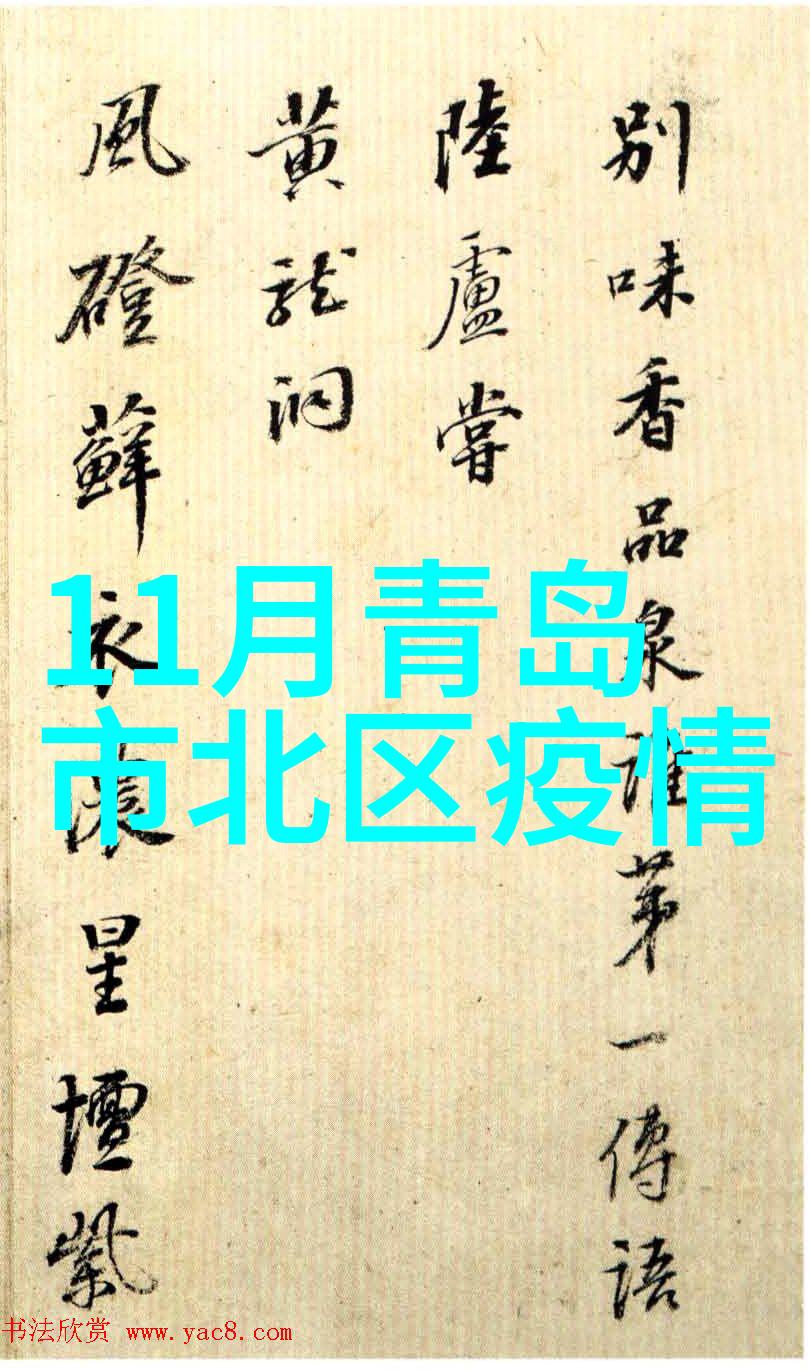 别味香品泉谁第一傳語
陸盧嘗
黄龍洞
風磴蘚衣滾星壇紫
11月青岛
市北区疫情
书法欣赏 www.yac8.com